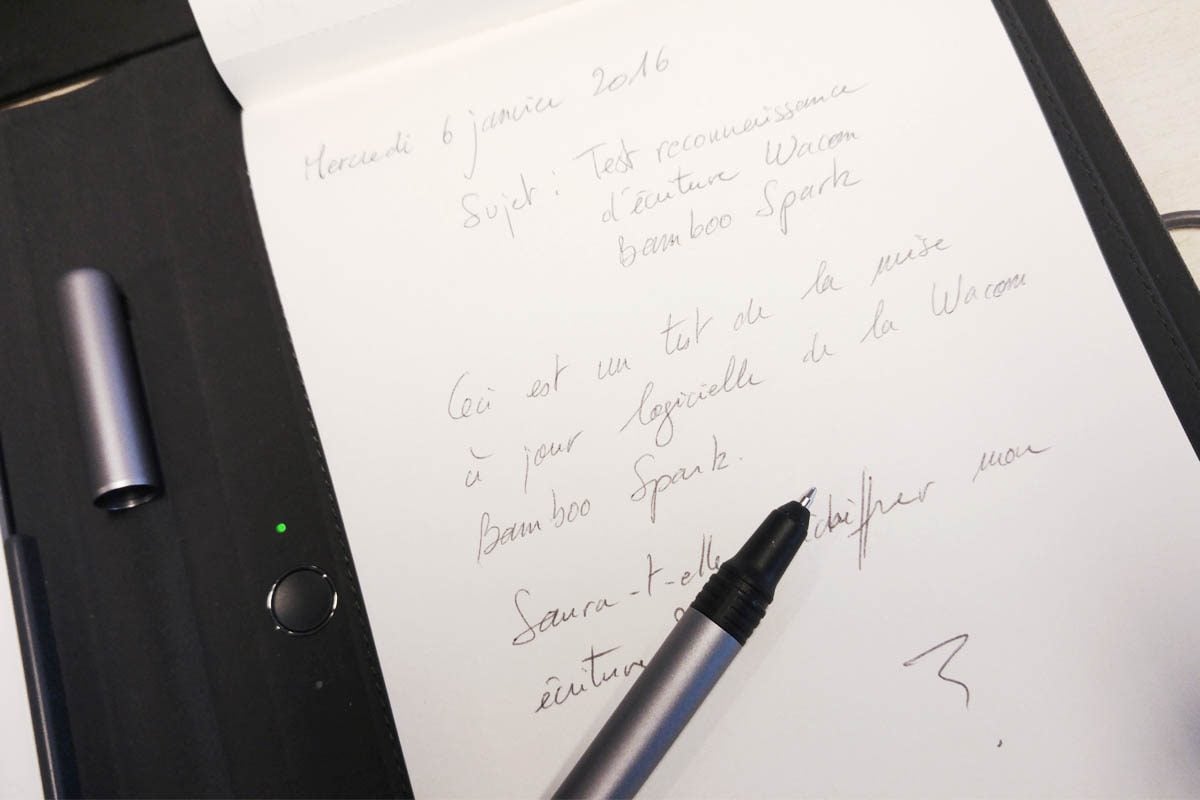 Mercredi 6 janvier 2016
Sujet : Test reconnaissance
d'écriture Wacom
Bamboo Spark
Ceci est un test de la mise
à jour logicielle de la Wacom
Bamboo Spark.
Saura-t-elle mon
écriture ?
?